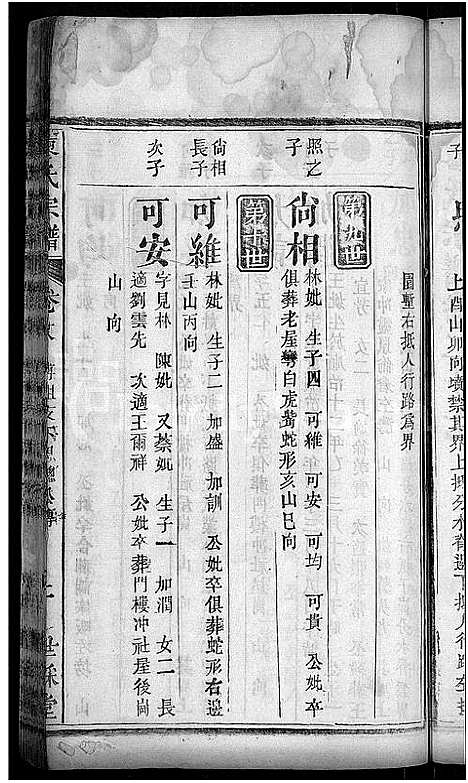 上酉山卯向墳禁其界上抵分水脊過下抵人行路左抵
圍塹右抵人行路爲界
第九世
照之子
尙相 林妣 生子四 可維 可安 可均 可貴 公妣卒
俱葬老屋灣白虎嘴蛇形亥山巳向
第十世
尙相長子
可維 林妣 生子二 加盛 加訓 公妣卒俱葬蛇形右邊
壬山丙向
次子
可安 字見林 陳妣 又蔡妣 生子一 加潤 女二 長
適劉雲先 次適王爾祥 公妣卒葬門樓冲社屋後崗
山向
氏宗譜 卷 世 堂